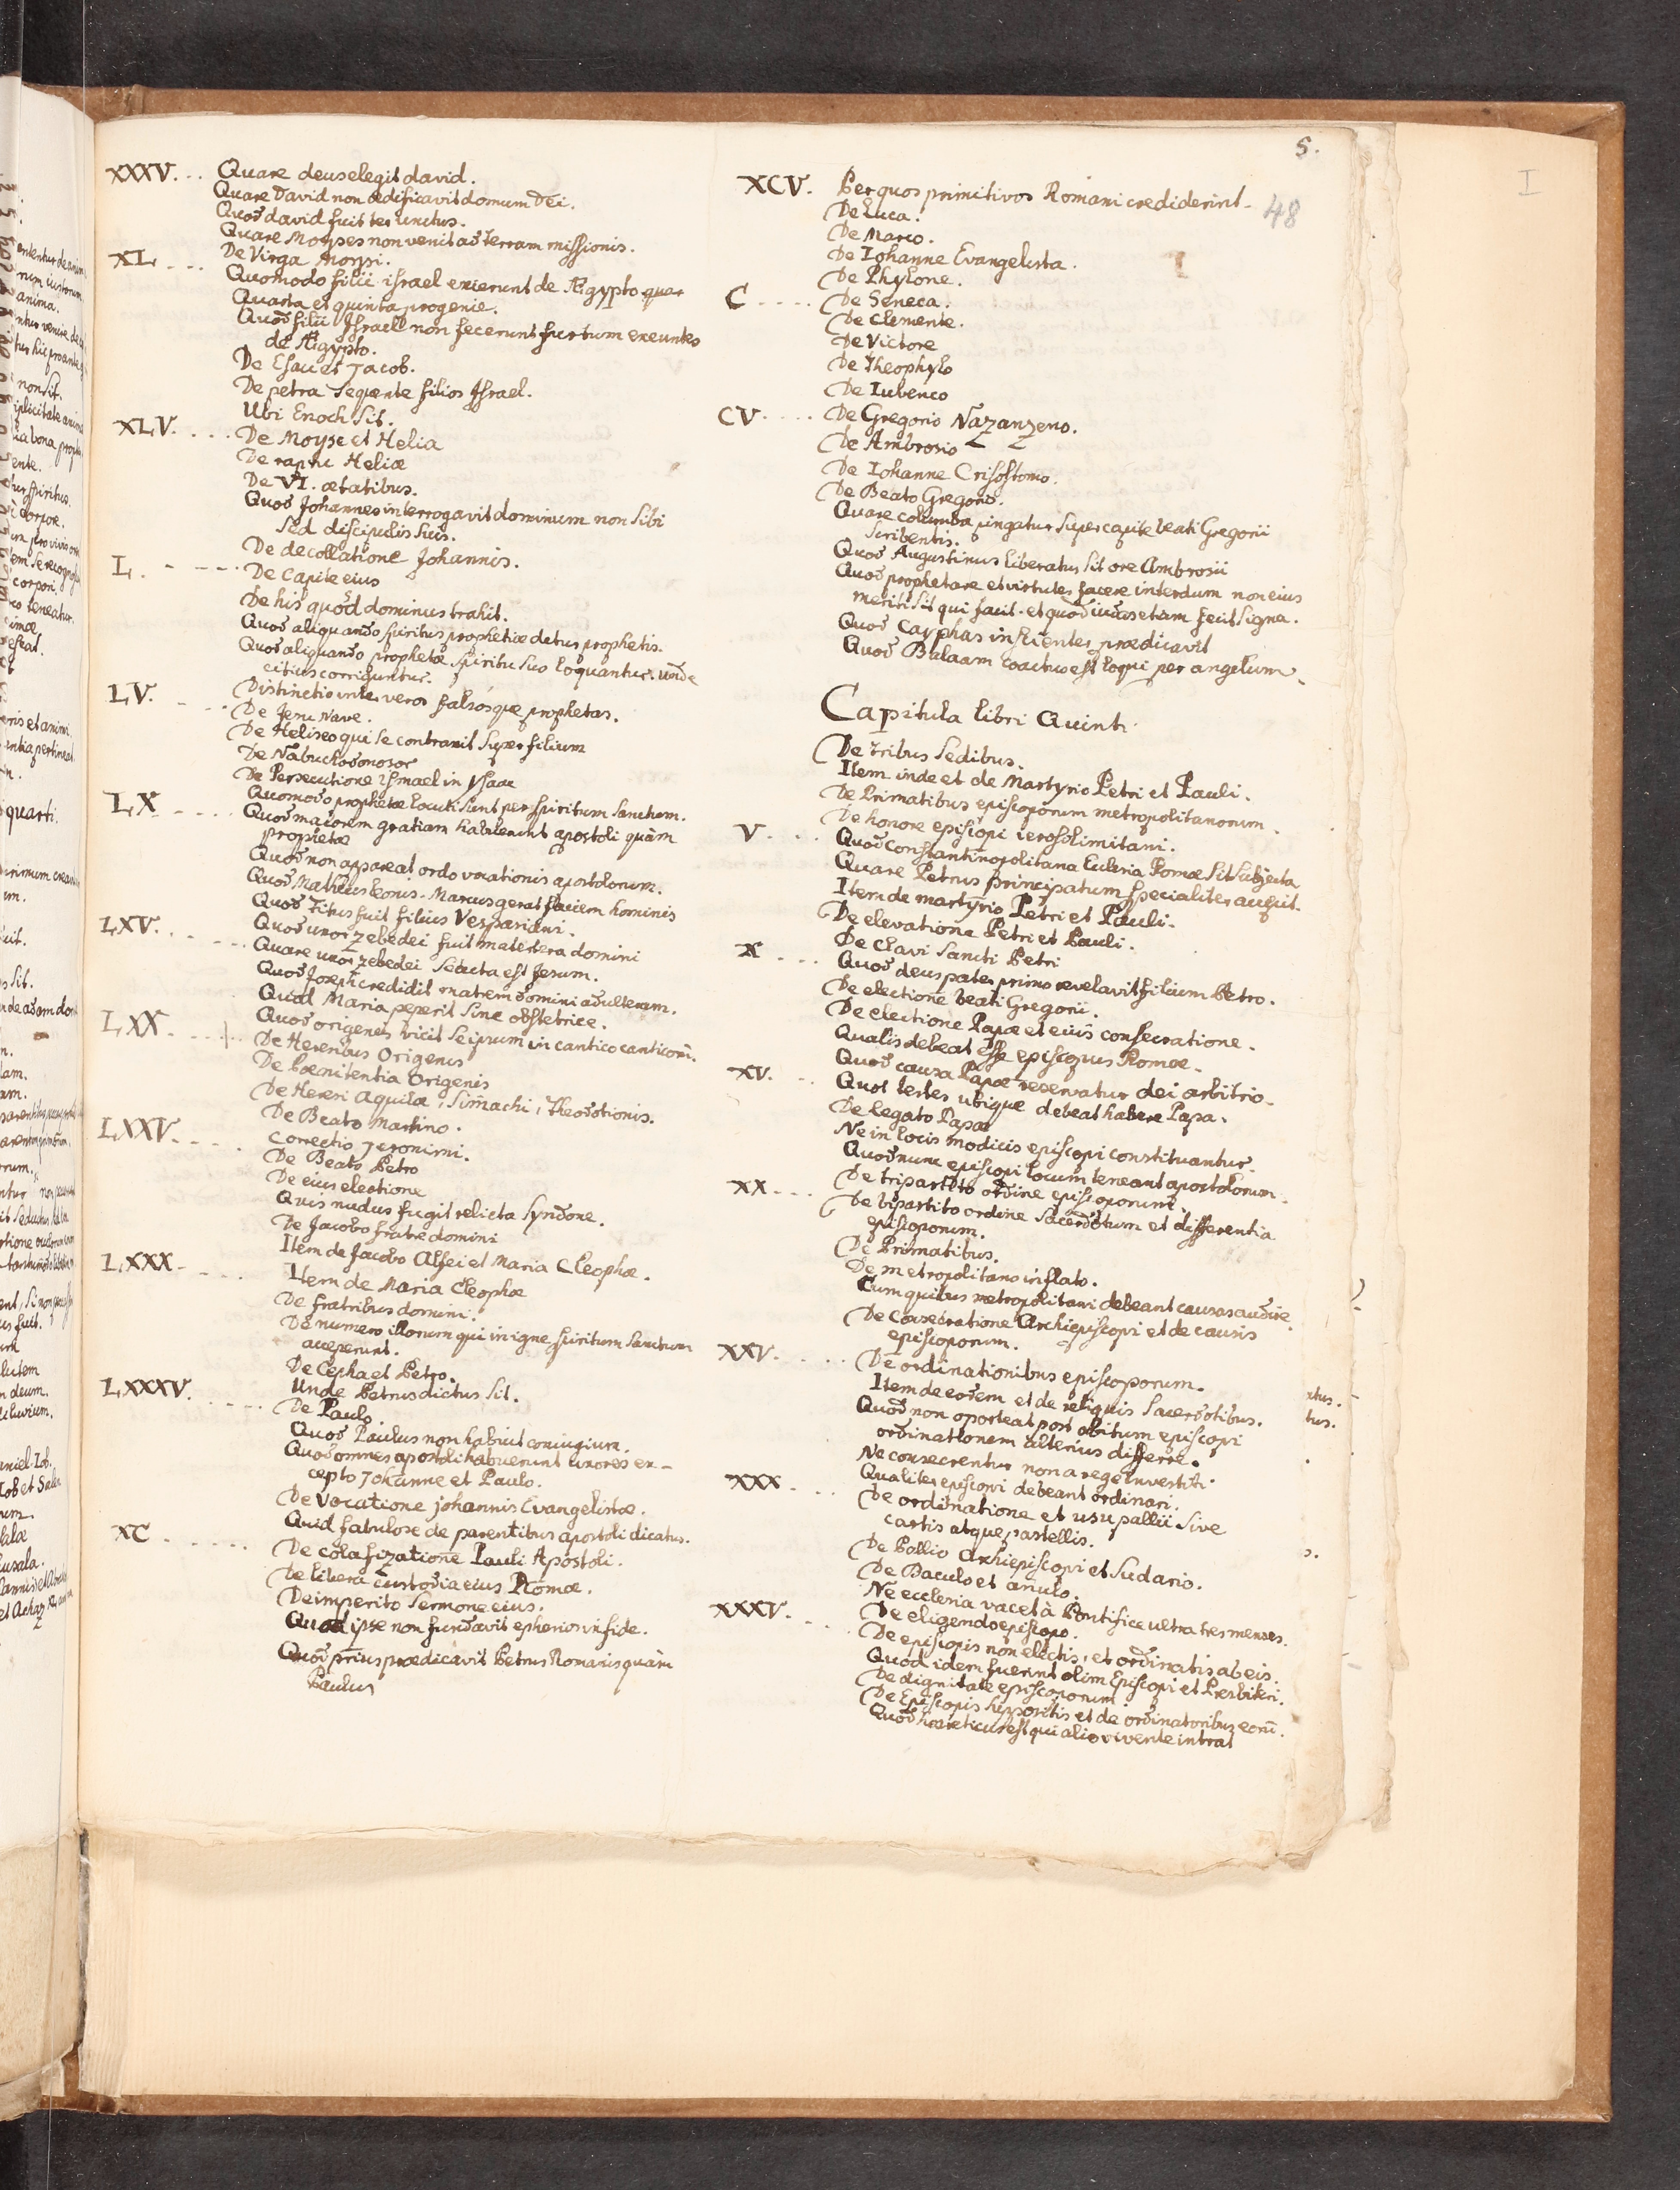 5.
48
I
XXXV... Quare deus elegit david.
Quare David non ædificavit domum Dei.
Quod david fuit ter unctus.
Quare Moyses non venit ad terram missionis.
XL ... De Virga Moysi.
Quomodo filii israel exierunt de Ægypto
Quarta et quinta progenie.
Quod filii Israel non fecerunt furtum exeuntes
de Ægypto.
De Esau et Jacob.
De petra sequente filios Israel.
Ubi Enoch sit.
XLV. ... De Moyse et Helia
De raptu Heliæ
De VI. ætatibus.
Quod Johannes interrogavit dominum non sibi
sed discipulis suis.
De decollatione Johannis.
L. ... De Capite eius
De his quod dominus trahit.
Quod aliquando spiritus prophetiæ detus prophetis.
Quod aliquando prophetæ spiritu suo loquantur. unde
citius corriguntur.
LV. ... Distinctio inter veros falsosque prophetas.
De Jesu Nave.
De Heliseo qui se contraxit super filium
De Nabuchodonosor
De Persecutione ismael in ysaac
LX ... Quomodo prophetæ locuti sunt per spiritum sanctum.
Quod maiorem gratiam habuerunt apostoli quàm
prophetæ
Quod non appareat ordo vocationis apostolorum.
Quod Matheus leonis. Marcus gerat faciem hominis
Quod Titus fuit filius Vespasiani.
LXV. ... Quod uxor zebedei fuit matertera domini
Quare uxor zebedei secuta est Jesum.
Quod Joseph credidit matrem domini adulteram.
Quod Maria peperit sine obstetrice.
Quod origenes vicit seipsum in cantico canticorū.
LXX. ... De Heresibus Origenis
De Poenitentia Origenis
De Heresi Aquilæ, Simmachi, Theodotionis.
De Beato Martino.
LXXV. ... Correctio Jeronimi.
De Beato Petro
De eius electione
Quis nudus fugit relicta syndone.
De Jacobo fratre domini
Item de Jacobo Alfei et Maria Cleophæ.
LXXX ... Item de Maria Cleophæ
De fratribus domini.
De numero illorum qui in igne spiritum sanctum
acceperunt.
De Cepha et Petro.
Unde Petrus dictus sit.
LXXXV. ... De Paulo.
Quod Paulus non habuit coniugium.
Quod omnes apostoli habuerunt uxores ex-
cepto Johanne et Paulo.
De Vocatione johannis Evangelistæ.
Quid fabulose de parentibus apostoli dicatus.
XC ... De colafizatione Pauli Apostoli.
De libera custodia eius Romæ.
De imperito sermone eius.
Quod ipse non fundavit ephesios in fide.
Quod prius prædicavit Petrus Romanis quàm
Paulus
XCV. Per quos primitivos Romani crediderint.
De Luca.
De Marco.
De Iohanne Evangelista.
De Phylone.
C .... De Seneca.
De Clemente.
De Victore
De Theophylo
De Iubenco
CV .... De Gregorio Nazanzeno.
De Ambrosio
De Iohanne Crisostomo.
De Beato Gregorio.
Quare columba pingatur super capite beati Gregorii
scribentis.
Quod Augustinus liberatus sit ore Ambrosii
Quod prophetare et virtutes facere interdum non eius
meriti sit qui facit. et quod iudas etiam fecit signa.
Quod Cayphas insciente, prædicavit
Quod Balaam coactus est loqui per angelum.
Capitula libri Quinti.
De tribus sedibus.
Item inde et de Martyrio Petri et Pauli.
De Primatibus episcoporum metropolitanorum.
De honore episcopi ierosolimitani.
V .... Quod Constantinopolitana Ecclesia Romæ sit subjecta
Quare Petrus principatum specialiter accepit.
Item de martyrio Petri et Pauli.
De elevatione Petri et Pauli.
De Clavi Sancti Petri
X .... Quod deus pater primo revelavit filium Petro.
De electione beati Gregorii.
De electione Papæ et eius consecratione.
Qualis debeat esse episcopus Romæ.
Quod causa Papæ reservatur dei arbitrio.
XV. .. Quot testes ubique debeat habere Papa.
De legato Papæ
Ne in locis modicis episcopi constituantur.
Quod nunc episcopi locum teneant apostolorum.
De tripartito ordine episcoporum.
XX ... De bipartito ordine sacerdotum et differentia
episcoporum.
De Primatibus.
De metropolitano inflato.
Cum quibus metropolitani debeant causas audire.
De Consecratione Archiepiscopi et de causis
episcoporum.
XXV. ... De ordinationibus episcoporum.
Item de eodem et de reliquis sacerdotibus.
Quod non oporteat post obitum episcopi
ordinationem alterius differre.
Ne consecrentur non a rege investiti.
XXX ... Qualiter episcopi debeant ordinari.
De ordinatione et usu pallii sive
cartis atque pastellis.
De Pallio Archiepiscopi et Sudario.
De Baculo et anulo.
Ne ecclesia vacet à Pontifice ultra tres menses.
XXXV. ... De eligendo episcopo.
De episcopis non electis, et ordinatis ab eis.
Quod idem fuerint olim Episcopi et Presbiteri.
De dignitate episcoporum.
De Episcopis hipocritis et de ordinatoribus eorū.
Quod hæreticus est qui alio vivente intrat